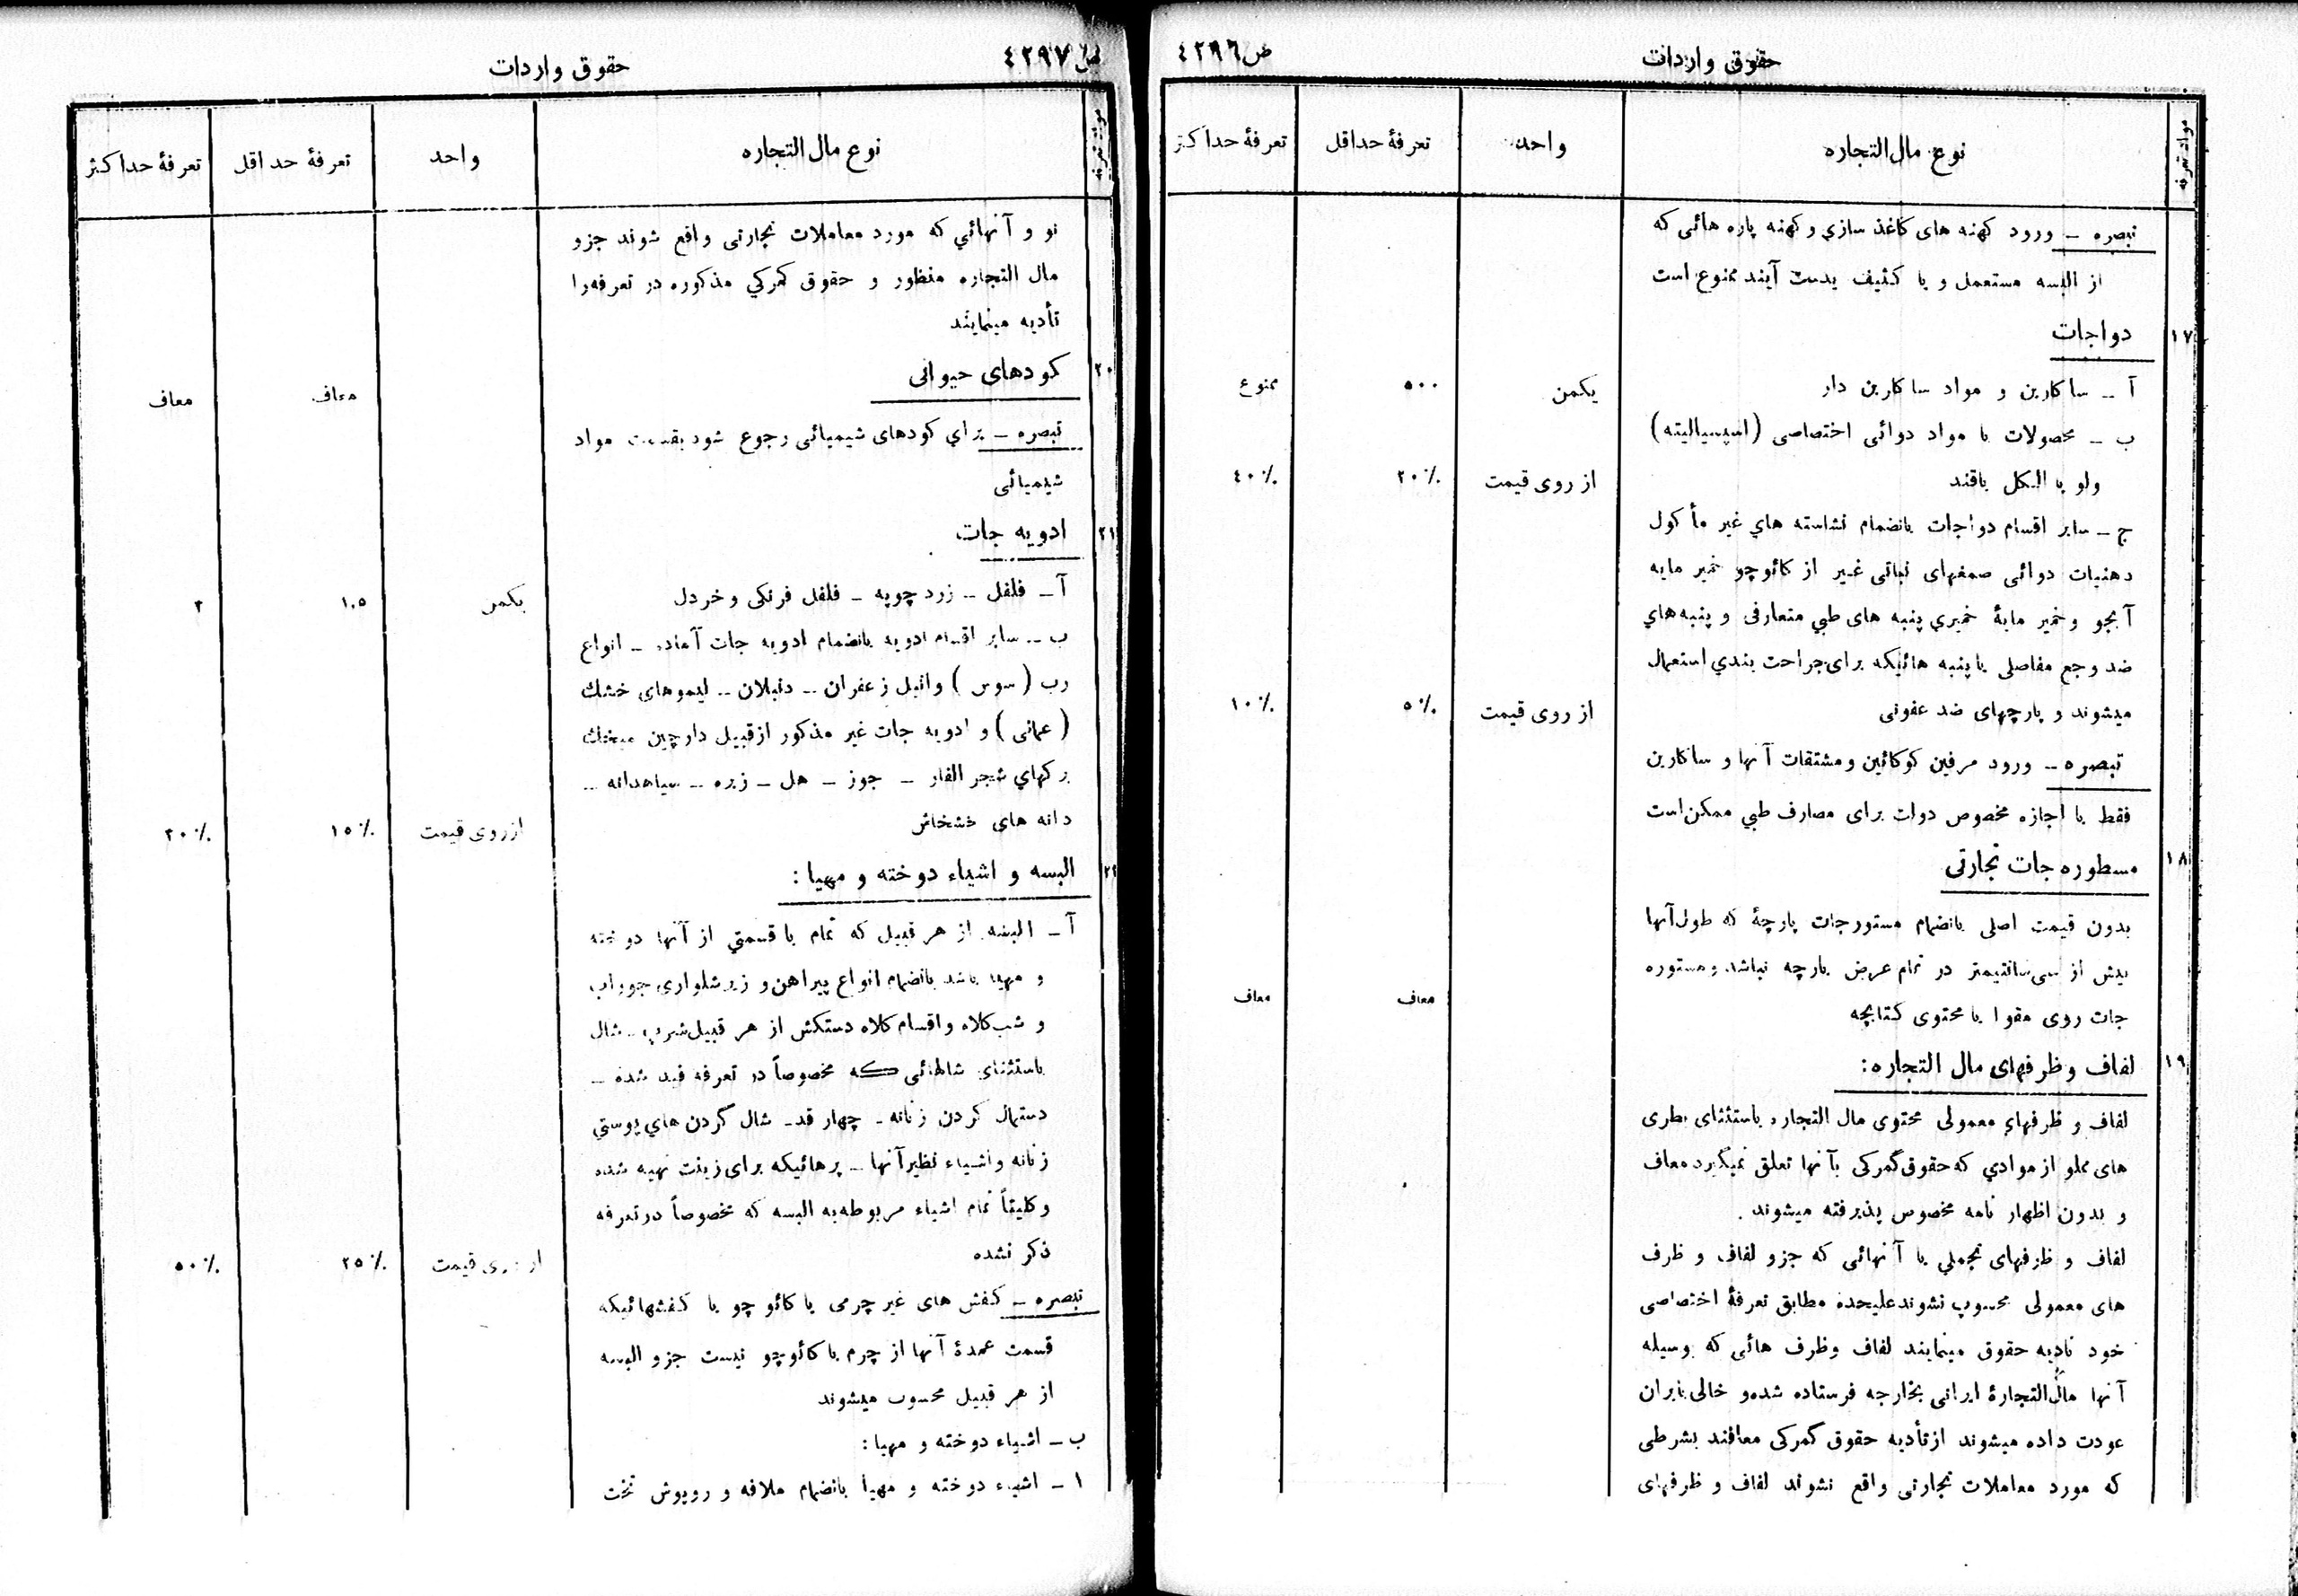 حقوق واردات
ص ٤٢٩٦
مواد تعرفه
نوع مال التجاره
واحد
تعرفهٔ حداقل
تعرفهٔ حداکثر
تبصره ــ ورود کهنه های کاغذ سازي و کهنه پاره هائی که
از البسه مستعمل و یا کثیف بدست آیند ممنوع است
١٧
دواجات
آ ــ ساکارین و مواد ساکارین دار
یکمن
٥٠٠
ممنوع
ب ــ محصولات یا مواد دوائی اختصاصی (اسپسیالیته)
ولو با الکل باقند
از روی قیمت
٢٠٪
٤٠٪
ج ــ سایر اقسام دواجات بانضمام نشاسته هاي غیر مأکول
دهنیات دوائی صمغهای نباتی غیر از کائوچو خمیر مایه
آبجو و خمیر مایهٔ خمیري پنبه های طبي متعارفی و پنبه هاي
ضد وجع مفاصلی یا پنبه هائیکه برای جراحت بندي استعمال
میشوند و پارچهای ضد عفونی
از روی قیمت
٥٪
١٠٪
تبصره ــ ورود مرفین کوکائین و مشتقات آنها و ساکارین
فقط با اجازه مخصوص دولت برای مصارف طبي ممکن است
١٨
مسطوره جات تجارتی
بدون قیمت اصلی بانضمام مستورجات پارچهٔ که طول آنها
بیش از سی سانتیمتر در تمام عرض پارچه نباشد و مستوره
جات روی مقوا یا محتوی کتابچه
معاف
معاف
١٩
لفاف و ظرفهای مال التجاره:
لفاف و ظرفهاي معمولی محتوی مال التجاره باستثنای بطری
های مملو از موادي که حقوق گمرکی بآنها تعلق نمیگیرد معاف
و بدون اظهار نامه مخصوص پذیرفته میشوند .
لفاف و ظرفهای تجملي یا آنهائی که جزو لفاف و ظرف
های معمولی محسوب نشوند علیحده مطابق تعرفهٔ اختصاصی
خود تادیه حقوق مینمایند لفاف وظرف هائی که بوسیله
آنها مال التجارهٔ ایرانی بخارجه فرستاده شده و خالی بایران
عودت داده میشوند از تأدیه حقوق گمرکی معافند بشرطی
که مورد معاملات تجارتی واقع نشوند لفاف و ظرفهای
ص ٤٢٩٧
حقوق واردات
مواد تعرفه
نوع مال التجاره
واحد
تعرفهٔ حداقل
تعرفهٔ حداکثر
نو و آنهائي که مورد معاملات تجارتی واقع شوند جزو
مال التجاره منظور و حقوق گمرکي مذکوره در تعرفه را
تأدیه مینمایند
٢٠
کودهای حیوانی
معاف
معاف
تبصره ــ براي کودهای شیمیائی رجوع شود بقسمت مواد
شیمیائی
٢١
ادویه جات
آ ــ فلفل ــ زرد چوبه ــ فلفل فرنکی و خردل
یکمن
١،٥
٣
ب ــ سایر اقسام ادویه بانضمام ادویه جات آماده ــ انواع
رب (سوس) وانیل زعفران ــ دنبلان ــ لیموهای خشك
(عمانی) و ادویه جات غیر مذکور از قبیل دارچین میخك
برکهاي شجر الغار ــ جوز ــ هل ــ زیره ــ سیاهدانه ــ
دانه های خشخاش
از روی قیمت
١٥٪
٣٠٪
٢٢
البسه و اشیاء دوخته و مهیا:
آ ــ البسه از هر قبیل که تمام یا قسمتي از آنها دوخته
و مهیا باشد بانضمام انواع پیراهن و زیر شلواری جوراب
و شب کلاه و اقسام کلاه دستکش از هر قبیل شرپ ــ شال
باستثنای شالهائی که مخصوصاً در تعرفه قید شده ــ
دستمال گردن زنانه ــ چهار قد ــ شال گردن هاي پوستي
زنانه و اشیاء نظیر آنها ــ پرهائیکه برای زینت تهیه شده
و کلیتاً تمام اشیاء مربوطه به البسه که مخصوصاً در تعرفه
ذکر نشده
از روی قیمت
٢٥٪
٥٠٪
تبصره ــ کفش های غیر چرمی یا کائو چو یا کفشهائیکه
قسمت عمدهٔ آنها از چرم یا کائوچو نیست جزو البسه
از هر قبیل محسوب میشوند
ب ــ اشیاء دوخته و مهیا:
١ ــ اشیاء دوخته و مهیا بانضمام ملافه و روپوش تخت